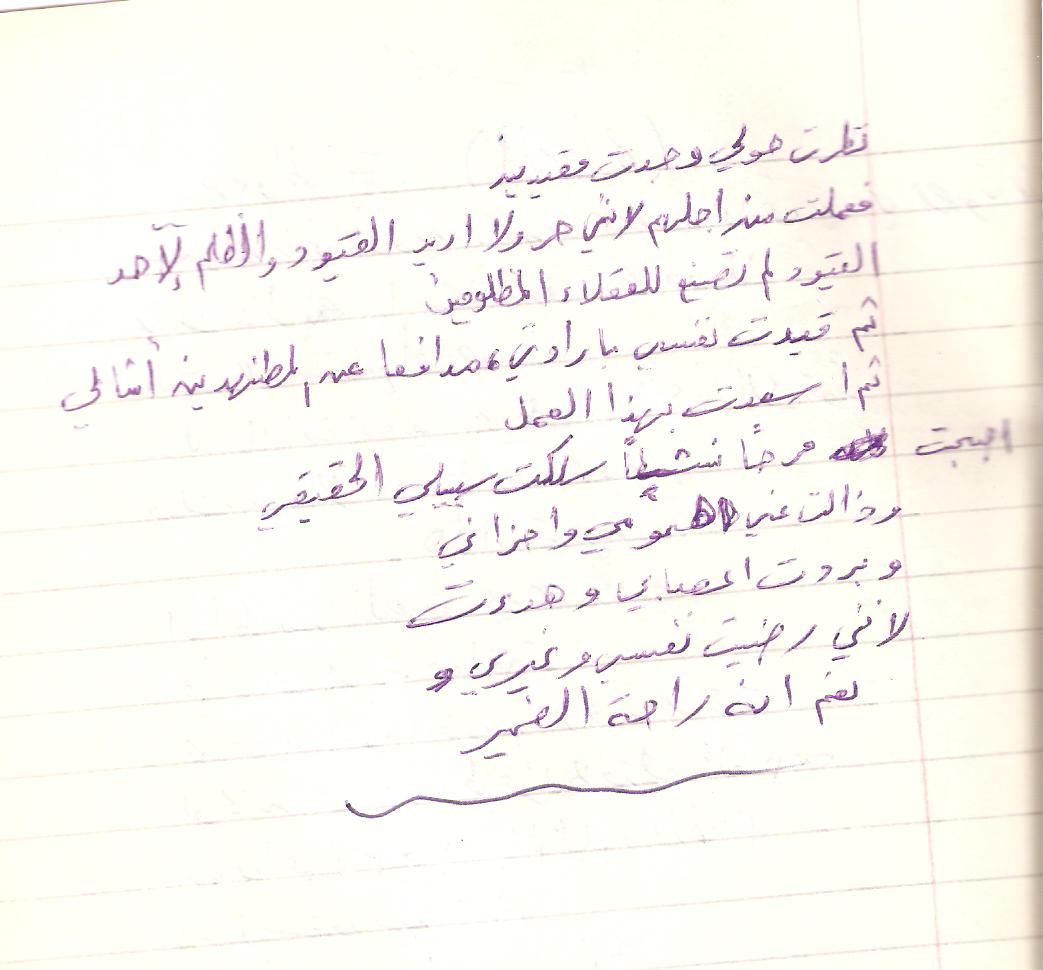 نظرت حولي وجدت مقيدين
فعملت من اجلهم لانني حر ولا اريد القيود والظلم لآحد
القيود لم تصنع للعقلاء المظلومين
ثم قيدت نفسي بارادتي، مدافعا عن المظهدين أمثالي
ثم سعدت بهذا العمل
اصبحت فرحاً نشيطاً سلكت سبيلي الحقيقي
وزالت عني همومي واحزاني
و بردت اعصابي و هدءت
لأنني رضيت نفسي وغيري و
نعم انه راحة الضمير